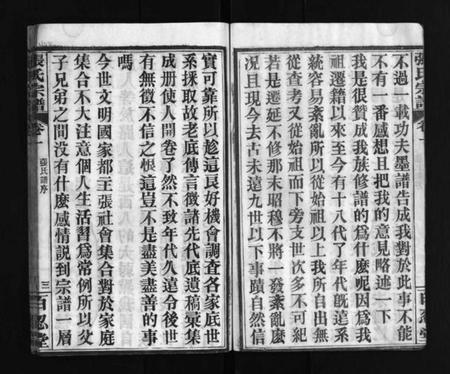 張氏宗譜
卷一
不過一載功夫墨譜告成我對於此事不能
不有一番感想且把我的意見略述一下
我是很贊成我族修譜的爲什麽呢因爲我
祖遷籍以來至今有十八代了年代旣遠系
統容易紊亂所以從始祖以上我所自出無
從查考又從始祖而下旁支世次多不可紀
若是遷延不修那末昭穆不將一發紊亂麽
況且現今去古未遠九世以下事蹟自然信
百忍堂
實可靠所以趁這良好機會調查各家底世
系採取故老底傳言徵諸先代底遺稿彙集
成册使人開卷了然不致年代久遠令後世
有無徵不信之恨這豈不是盡美盡善的事
嗎
今世文明國家都主張社會集合對於家庭
集合不大注意個人生活習爲常例所以父
子兄弟之間没有什麽感情說到宗譜一層
張氏宗譜
卷一
張氏譜序
三
百忍堂